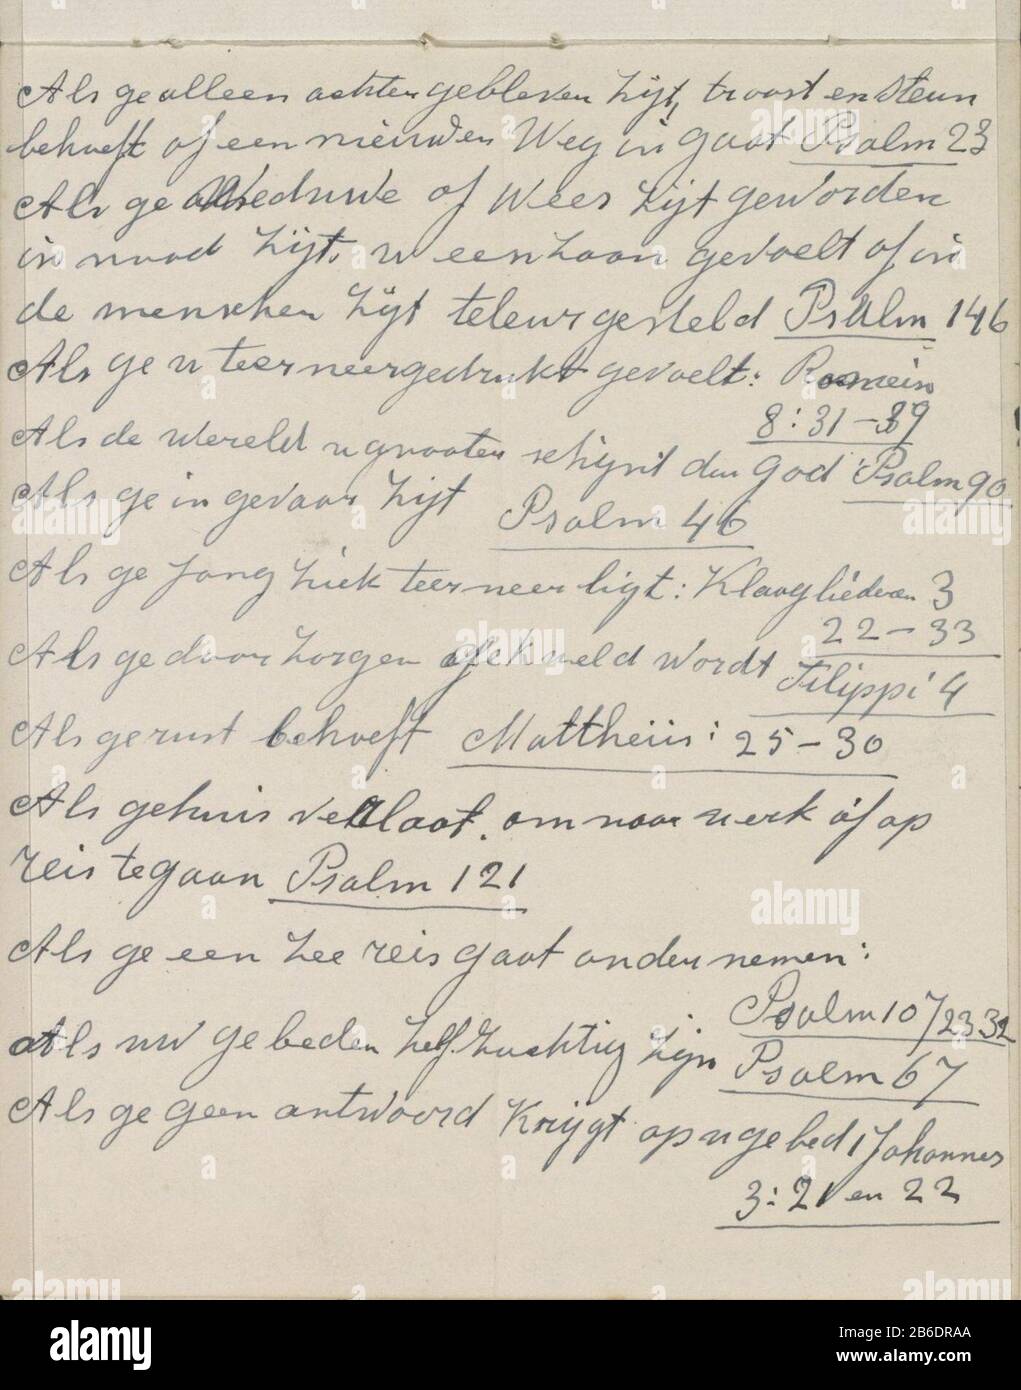 Als ge alleen achter gebleven zijt, troost en steun
behoeft of een nieuwen Weg in gaat Psalm 23
Als ge Weduwe of Wees zijt geworden
in nood zijt, u eenzaam gevoelt of in
de menschen zijt teleurgesteld Psalm 146
Als ge u teerneergedrukt gevoelt: Romein
8:31-39
Als de wereld u grooter schijnt dan God Psalm 90
Als ge in gevaar zijt Psalm 46
Als ge lang ziek teerneer ligt: Klaagliederen 3
22-33
Als ge door zorgen gekweld wordt Filippi 4
Als ge rust behoeft Mattheüs: 25-30
Als ge huis verlaat, om naar werk of op
reis te gaan Psalm 121
Als ge een zee reis gaat ondernemen:
Psalm 107 23 32
Als uw gebeden zelfzuchtig zijn Psalm 67
Als ge geen antwoord Krijgt op u gebed 1 Johannes
3:21 en 22
alamy
Image ID: 2B6DRAA
www.alamy.com